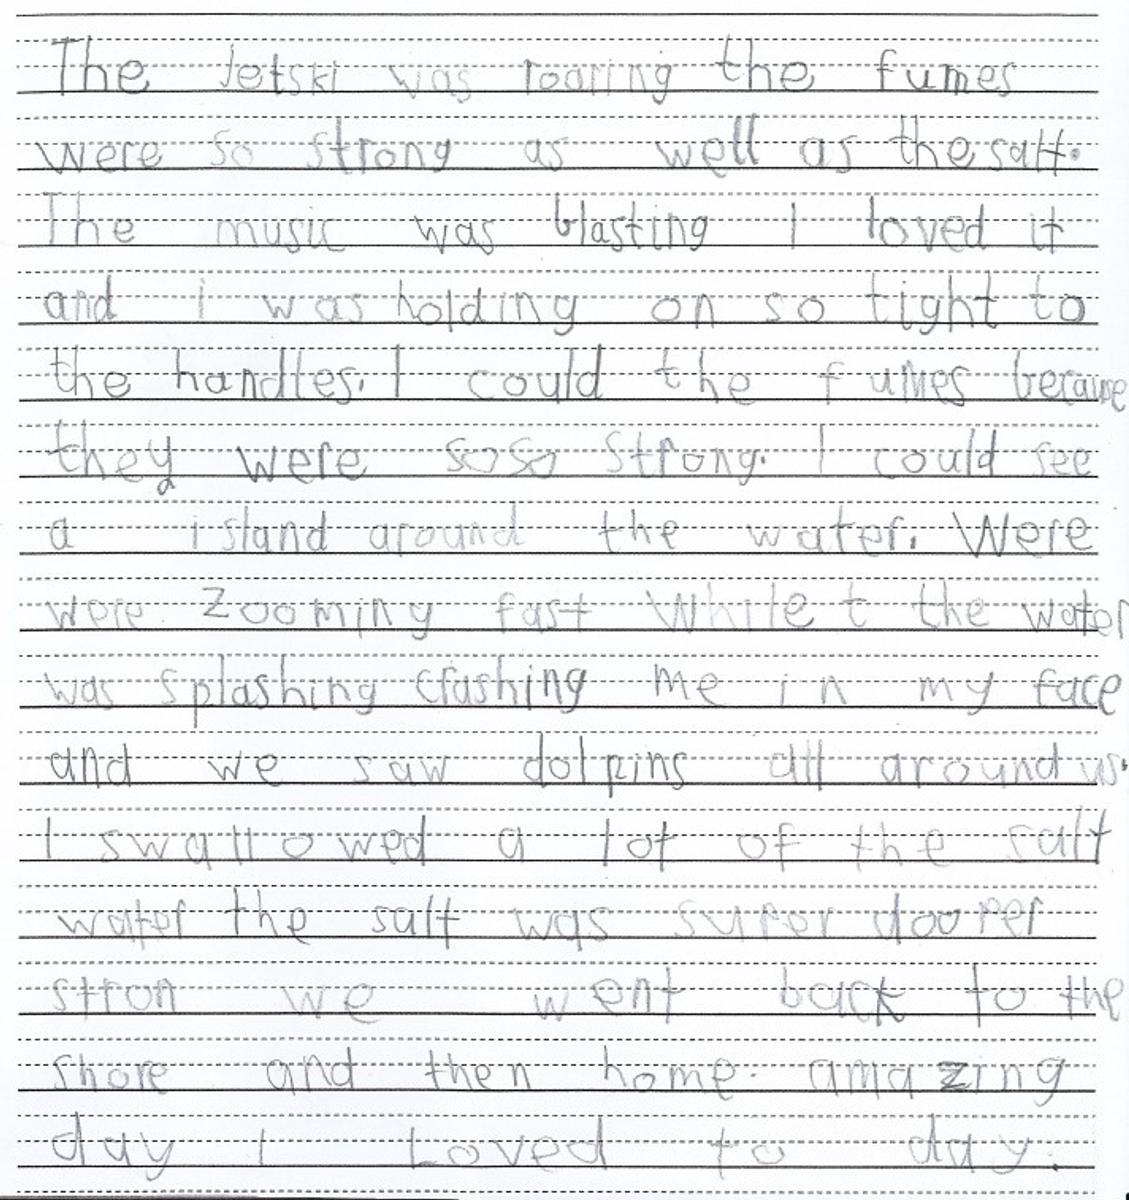 The Jetski was roaring the fumes
were so strong as well as the salt.
The music was blasting I loved it
and i was holding on so tight to
the handles. I could the fumes because
they were so so strong. I could see
a island around the water. Were
were zooming fast while t the water
was splashing crashing me in my face
and we saw dolpins all around us.
I swallowed a lot of the salt
water the salt was super dooper
stron we went back to the
shore and then home. amazing
day I Loved to day.